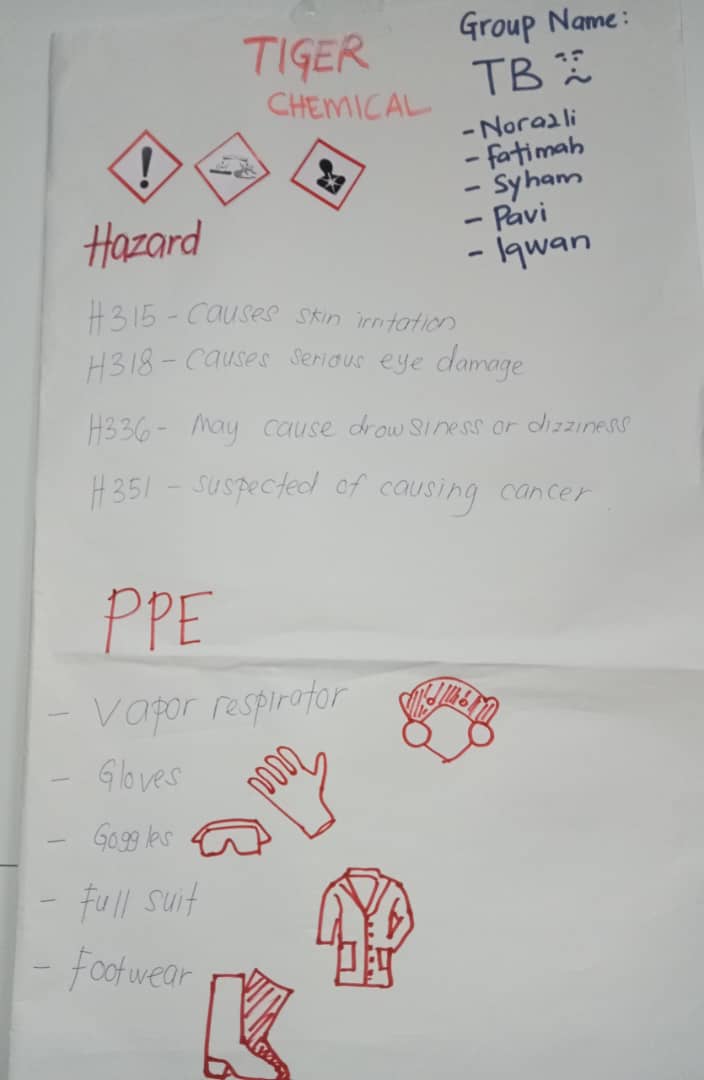 TIGER
CHEMICAL
Group Name:
TB
- Norazli
- Fatimah
- Syham
- Pavi
- Iqwan
Hazard
H315 - Causes skin irritation
H318 - Causes serious eye damage
H336 - May cause drowsiness or dizziness
H351 - suspected of causing cancer
PPE
- Vapor respirator
- Gloves
- Goggles
- Full suit
- Footwear